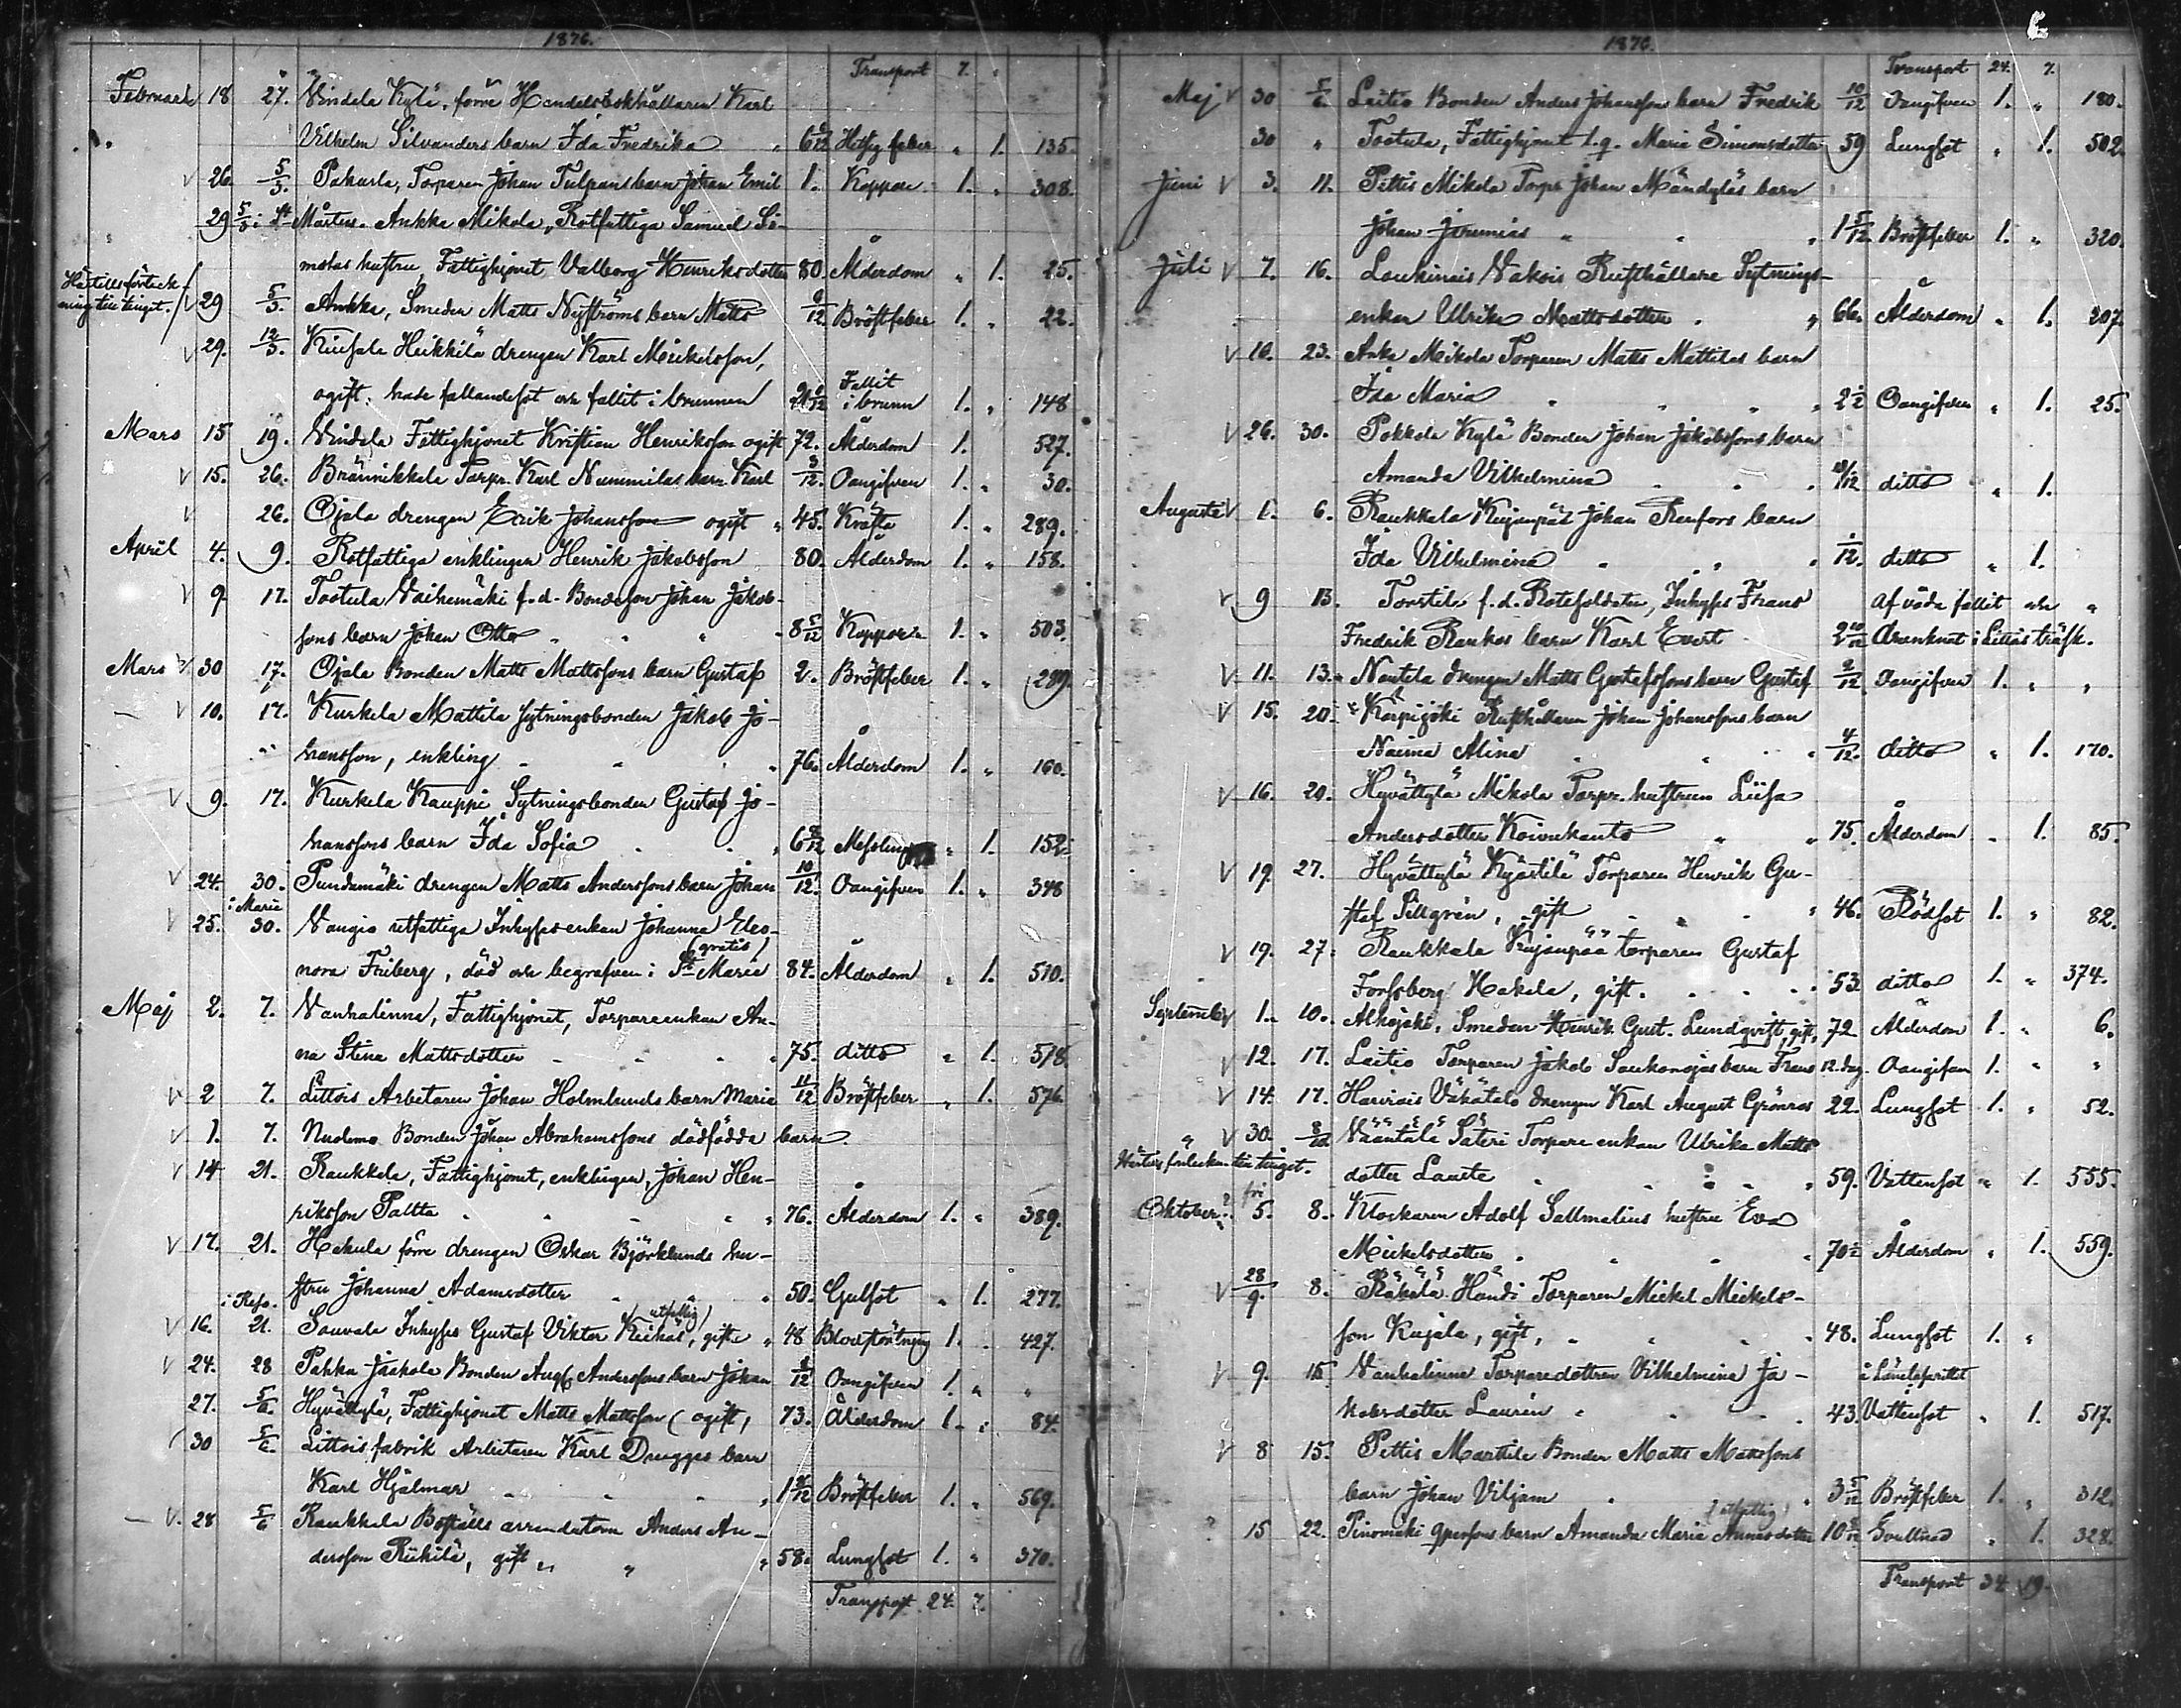 1876.
Transport 7. "
Februari 18 27. Vindela Kylä, förre Handelsbokhållaren Karl
Vilhelm Silvanders barn Ida Fredrika " 6 /12 Hetsig feber " 1. 135.
V 26. 5/3. Pakurla, Torparen Johan Tulpans barn Johan Emil 1. Koppor 1. " 308.
29 5/3 i St Mårtens. Ankka Mikola, Rotfattiga Samuel Si-
molas hustru, Fattighjonet Valborg Henriksdotter 80. Ålderdom " 1. 25.
Härtills förteck-
ning till tinget. V 29 5/3. Ankka, Smeden Matts Nyströms barn Matts /12 Bröstfeber 1. " 22.
V 29. 12/3. Heikkilä drengen Karl Mickelsson,
ogift. hade fallandesot och fallit i brunnen 21 /12 Fallit i brunn 1. " 148
Mars 15 19. Vindela Fattighjonet Kristian Henriksson ogift 72. Ålderdom 1. 527.
V 15. 26. Brännikkala Torpr. Karl Nummilas barn Karl 3/12. Oangifven 1. " 30.
V 26. Ojala drengen Erik Johansson ogift " 45. Kräfta 1. " 289.
April 4. 9. Rotfattiga enklingen Henrik Jakobsson 80. Ålderdom 1. " 158.
V 9 17. Tootula Vaihemäki f.d. Bondeson Johan Jakob-
sons barn Johan Otto " " " 8 5/12 Koppor 1. " 503.
Mars V 30 17. Ojala Bonden Matts Mattssons barn Gustaf 2. Bröstfeber 1. " 289.
V 10. 17. Kurkela Mattila sytningsbonden Jakob Jo-
hansson, enkling " " " 76. Ålderdom 1. " 160.
V 9. 17. Kurkela Kauppi Sytningsbonden Gustaf Jo-
hanssons barn Ida Sofia " " 6 8/12 Messling " 1. 152.
V 24. 30. Pundamäki drengen Matts Anderssons barn Johan 10/12. Oangifven 1. " 348
i Marie
V 25. 30. Vaugio utfattiga Inhyses enkan Johanna Eleo-
(gratis)
nora Friberg, död och begrafven i St Marie 84. Ålderdom " 1. 510.
Maj 2. 7. Vanhalinna, Fattighjonet, Torpareenkan An-
na Stina Mattsdotter " " 75. ditto " 1. 518.
V 2 7. Littois Arbetaren Johan Holmlunds barn Maria 11/12 Bröstfeber " 1. 576.
V 1. 7. Nuolemo Bonden Johan Abrahamssons dödfödda barn
V 14 21. Raukkala, Fattighjonet, enklingen, Johan Hen-
riksson Paltta " " " 76. Ålderdom 1. " 389.
V 17. 21. Hakula förre drengen Oskar Björklunds hu-
stru Johanna Adamsdotter " " 50. Gulsot " 1. 277.
i Reso. (utfattig)
V 16. 21. Souvala Inhyses Gustaf Viktor, gift " 48 Blodstörtning 1. " 427.
V 24. 28 Pahka Jaakola Bonden Aug. Anderssons barn Johan /12 Oangifven 1. " "
27. 5/6. Hyvättylä, Fattighjonet Matts Mattsson (ogift, 73. Ålderdom 1. " 84.
30 5/6. Littois fabrik Arbetaren Karl Drugges barn
Karl Hjalmar " " " 1 /12 Bröstfeber 1. " 569.
V. 28 5/6 Raukkala Boställs arrendatorn Anders An-
dersson Rükilä, gift " " " 58. Lungsot 1. " 370.
Transport 24. 7.
1876.
Transport 24. 7.
Maj V 30 5/6. Laitio Bonden Anders Johanssons barn Fredrik 10/12 Oangifven 1. " 180.
30 " Tootula, Fattighjonet l.q. Maria Simonsdotter 59 Lungsot " 1. 502.
Juni V 3. 11. Pettis Mikola Torpr. Johan Mändyläs barn
Johan Jeremias " " " 1 5/12 Bröstfeber 1. " 320.
Juli V 7. 16. Loukinais Vakois Rusthållare Sytnings-
enkan Ulrika Mattsdotter " " 66. Ålderdom " 1. 207.
V 10. 23. Anka Mikola Torparen Matts Mattilas barn
Ida Maria " " " 2 1/2 Oangifven " 1. 25.
V 26. 30. Pokkola Kylä Bonden Johan Jakobssons barn
Amanda Vilhelmina " " " /12 ditto " 1.
Augusti V 1. 6. Raukkala Kujanpää Johan Renfors barn
Ida Vilhelmina " " " 1/12. ditto " 1.
V 9 13. Torstila f.d. Rotesoldaten, Inhyses Frans Af våda fallit och "
Fredrik Raukos barn Karl Evert 2 10/12 drunknat i Littois träsk.
V 11. 13. Nautela drengen Matts Gustafssons barn Gustaf 9/12. Oangifven 1. " "
V 15. 20. Karpijoki Rusthållaren Johan Johanssons barn
Naima Alina " " " 4/12. ditto " 1. 170.
V 16. 20. Hyvättylä Mikola Torpr. hustrun Liisa
Andersdotter Koivukanto " " 75. Ålderdom " 1. 85.
V 19. 27. Hyvättylä Kjästilä Torparen Henrik Gu-
staf Sillgrén, gift " " " 46. Rödsot 1. " 82.
V 19. 27. Raukkala Kujanpää torparen Gustaf
Forssberg Hakala, gift. " " 53 ditto 1. " 374.
September V 1. 10. Alhojoki, Smeden Henrik Gust. Lundqvist, gift, 72 Ålderdom 1. " 6.
V 12. 17. Laitio Torparen Jakob Saukonojas barn Frans 12 dag. Oangifven 1. " "
V 14. 17. Harvois Väkätalo drengen Karl August Grönroos 22. Lungsot 1. " 52.
V 30. 8/10. Vääntälä Säteri Torpare enkan Ulrika Matts-
till tinget. dotter Lauste " " " 59. Vattensot " 1. 555.
fri
Oktober 5. 8. Klockaren Adolf Sallmelius hustru Eva
Mickelsdotter " " " 70 1/2 Ålderdom " 1. 559.
V 28/9. 8. Räkälä Händi Torparen Mickel Mickels-
son Kujala, gift, " " " 48. Lungsot 1. "
V 9. 15. Vanhalinna Torparedottren Vilhelmina Ja- i Länelasarettet
kobsdotter Laurén " " " 43. Vattensot " 1. 517.
V 8 15. Pettis Marttila Bonden Matts Mattssons
barn Johan Viljam " " 3 5/12 Bröstfeber 1. " 312.
(utfattig)
15 22. Pinomäki qpersons barn Amanda Maria Annasdotter 10 /12 " 1. 328.
Transport 34. 19.